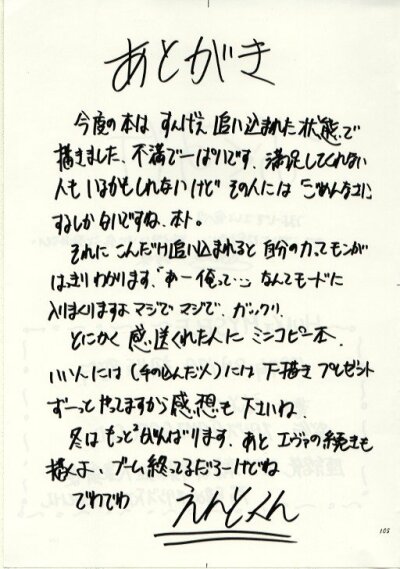 あとがき
今度の本は すんげえ 追い込まれた状態で
描きました、不満で一ぱいです、満足してくれない
人もいるかもしれないけど その人には ごめんなさいに
するしかないですね、ホト。
それに こんだけ追い込まれると 自分の力ってモンが
はっきりわかります、「あー俺って…」なんてモードに
入りまくりますよ マジで マジで、ガックリ、
とにかく 感想送くれた人に ミニコピー本、
いい人には(手の込んだ人)には 下描き プレゼント
ずーっと やってますから 感想も 下さいね、
冬はもっとがんばります、あと エヴァの続きも
描くよ、ブーム終ってるだろーけどね
でわでわ
えんどくん
105